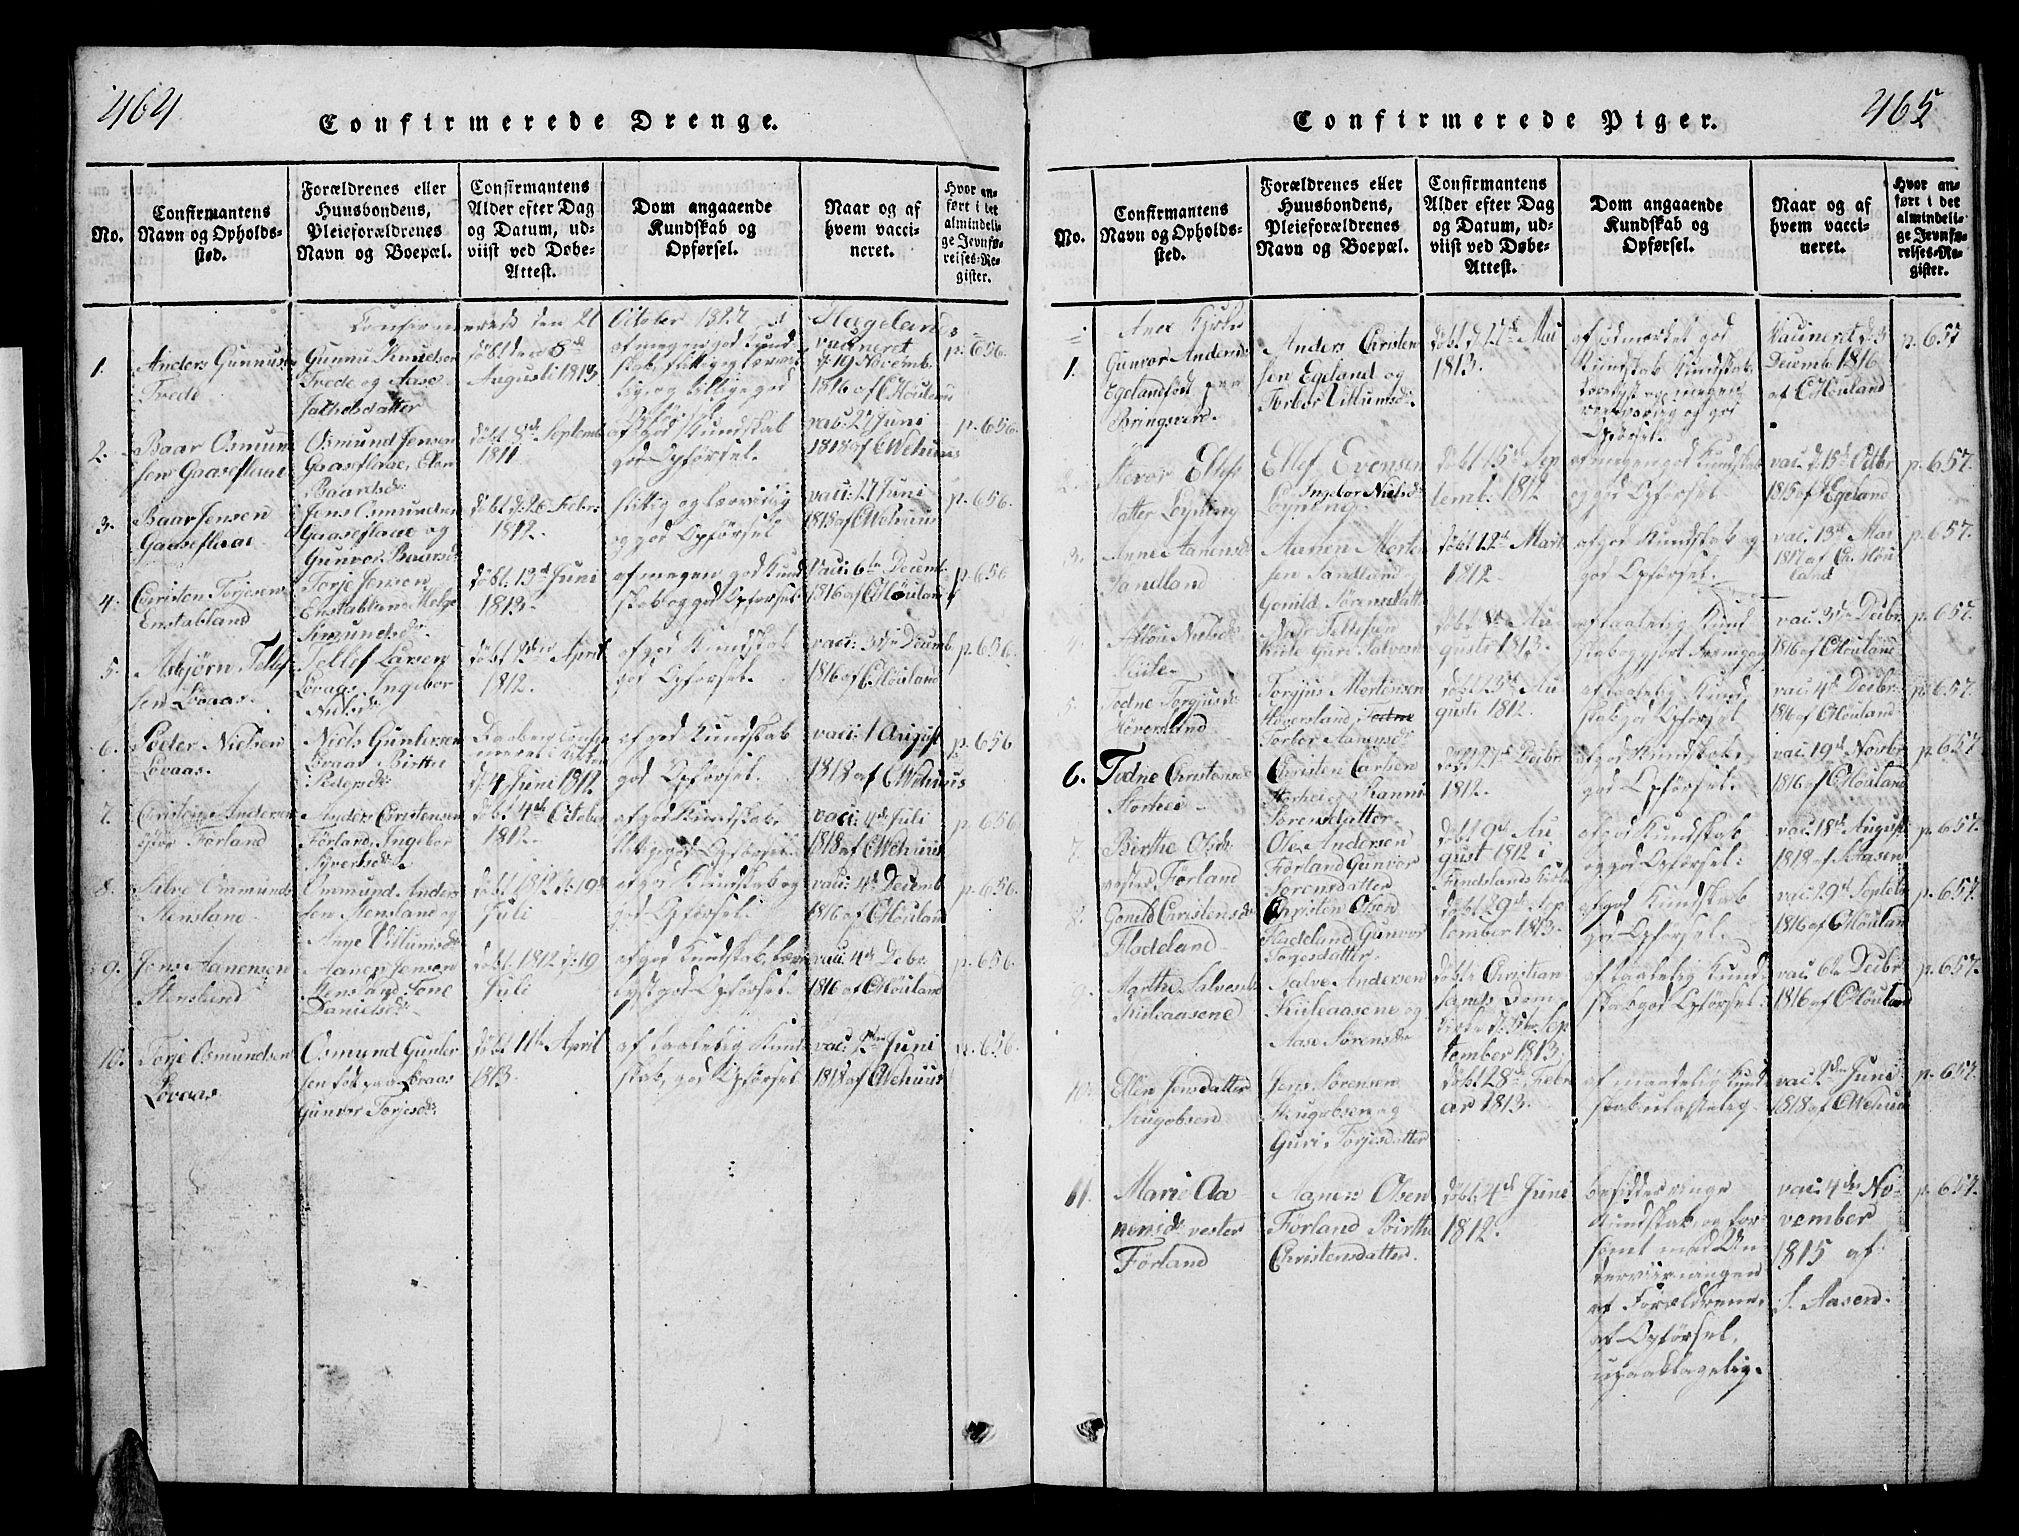 464
Confirmerede Drenge.
No.
Confirmantens
Navn og Opholds-
sted.
Forældrenes eller
Huusbondens,
Pleieforældrenes
Navn og Boepæl.
Confirmantens
Alder efter Dag
og Datum, ud-
viist ved Døbe-
Attest.
Dom angaaende
Kundskab og
Opførsel.
Naar og af
hvem vacci-
neret.
Hvor an-
ført i det
almindeli-
ge Jevnfø-
relses-Re-
gister.
Confirmerede den 21 October 1827
1.
Anders Gunnuse
Trede
Gunnu Knudsen
Trede og Aase
döbt den 8de
Augusti 1813
af megen god Kund
vacineret
d. 19 Novemb.
1816 af C Høuland
p. 656.
2.
Baar Osmun
sen Gaaseflaae
Osmund Jensen
Gaaseflaae, Elen
Baardsdr
döbt 8de Septemb
1811
af god Kundskab
god Opförsel.
vac: 27 Juni
1818 af C Wehuus
p. 656.
3.
Baar Jensen
Gaaseflaae
Jens Osmundsen
Gaaseflaae og
Gunvor Baarsdr
döbt d: 26 Febr.
1812.
flittig og lærvillig
og god Opförsel
vaci: 17 Juni
1818 af C Wehuus
p. 656.
4.
Christen Torjesen
Enstabland
Torje Jensen
Enstabland Helge
Simundsdr
döbt: 13de Juni
1813.
af megen god Kund
skab og god Opförsel
Vaci: 6te Decemb.
1816 af C Høuland
p. 656
5.
Asbjörn Tellef
sen Lovaas
Tellef Larsen
Lovaas, Ingebor
Nielsdr
April
1812.
af god Kundskab
god Opförsel.
vaci: 3die Decemb
1816 af C. Høuland
p. 656.
6.
Peder Nielsen
Lovaas.
Niels Guntersen
Lovaas Birthe
Pedersdr
d. 4 Juni 1812
af god Kundskab
god Opförsel.
vaci: 1 August
1818 af C Wehuus
p. 656
7.
Christen Andersen
Förland
Anders Christensen
Förland, Ingebor
Syvertsdr
döbt. 4de October
1812.
af god Kundskab
vaci: 4de Juli
1818 af C Wehuus
p. 656
8.
Salve Ommunds
Stensland
Ommund Anders
sen Stensland og
Anne Villumsdr
döbt 1812 d: 19de
Juli
af god Kundskab og
god Opförsel.
vaci: 4de Decemb
1816 af C Høuland
p. 656.
9.
Jens Aanensen
Stensland
Aanen Jensen
Stensland Tone
Danielsdr
döbt. 1812 d: 19
Juli
af god Kundskab, lære
lyst god Opförsel.
vac: 4de Debr.
1816 af C Høuland
p. 656.
10.
Torje Osmundsen
Lovaas
Osmund Gunter
sen föd paa Lovaas
Gunvor Torjesdr.
döbt 11te April
1813.
af taalelig Kund
skab, god Opförsel
vac: Juni
1818 af C Wehuus
p. 656.
465
Confirmerede Piger.
No.
Confirmantens
Navn og Opholds-
sted.
Forældrenes eller
Huusbondens,
Pleieforældrenes
Navn og Boepæl.
Confirmantens
Alder efter Dag
og Datum, ud-
viist ved Døbe-
Attest.
Dom angaaende
Kundskab og
Opførsel.
Naar og af
hvem vacci-
neret.
Hvor an-
ført i det
almindeli-
ge Jevnfø-
relses-Re-
gister.
1.
Gunvor Andersd
Egeland föd paa
Bringsværd
Anders Christen
sen Egeland og
Torbor Villumsdr
döbt d. 17de Mai
1813.
af udmærket god
Kundskab
og god
Opförsel.
Vacineret d. 3
Decemb 1816
af C Høuland
p. 657
2.
Elefs
datter Løyning
Ellef Evensen
Løyning, Ingebor Nielsdr
döbt 15de Sep
temb: 1812
af megen god Kundskab
og god Opförsel
vac. d: 15de Octbr
1815 af Egeland
p. 657.
3.
Anne Aanensdr
Sandland
Aanen Morten
sen Sandland
Gonild Sörensdatt.
döbt 12te Mart
1812
af god Kundskab og
god Opförsel.
vac. 13de Mai
1817 af Ch. Høu
land
p. 657.
4.
Nielsdr
Kiile
Tellefsen
Kiile Guri Salvesdr
döbt Au
gusti 1813.
af taalelig Kund
vac. 3die Decbr.
1816 af C Høuland
p. 657.
5.
Todne Torgiusdr
Høversland
Torgjus Mortensen
Høversland, Todne
Torbor Aanensdr
döbt 23de Au
gusti 1812.
af taalelig Kund
skab god Opförsel
vac. 4de Decbr.
1816 af C Høuland
p. 657.
6.
Todne Christensdr
Storhei
Christen Carlsen
Storhei og Ranni
Sörensdatter.
döbt 27de Decbr.
1812.
af god Kundskab,
god Opförsel.
vac. 19de Novbr
1816 af C Høuland
p. 657.
7.
Birthe Olsdr.
vester Förland
Ole Andersen
Förland Gunvor
Sörensdatter
döbt 9de Au
gust 1812 i
Findslands Kirke
af god Kundskab
og god Opförsel:
vac. 18de August
1818 af S. Aasen
p. 657.
8.
Gonild Christensdr
Fladeland
Christen Olsen
Fladeland Gunvor
Torgesdatter.
döbt 29de Sep
tember 1813.
af god Kundskab
god Opförsel.
vac: 29de Septebr
1816 af C Høuland
p. 657.
9.
Marthe Salvesdr
Kiileaasene
Salve Andersen
Kiileaasene og
Aase Sörensdr
döbt i Christian
sands Dom
kirke d: 5te Sep
tember 1813.
af taalelig Kund
skab god Opförsel.
vac: 6te Decbr
1816 af C Høuland
p. 657.
10.
Ellen Jensdatter
Jens Sörensen
og
Guri Torjesdatter
döbt 28de Febr
ar 1813.
af maadelig Kund
skab ulastelig
vac. Juni
1818 af C Wehuus
p. 657.
11.
Marie Aa
nensdr vester
Förland
Aanen Olsen
Förland Birthe
Christensdatter.
döbt. 4de Juni
1812.
besidder ringe
Kundskab, og for
sömt med Un
derviisningen
af Forældrene,
af Opförsel,
upaaklagelig.
vac: 4de No
vember
1815 af
S. Aasen.
p. 657.